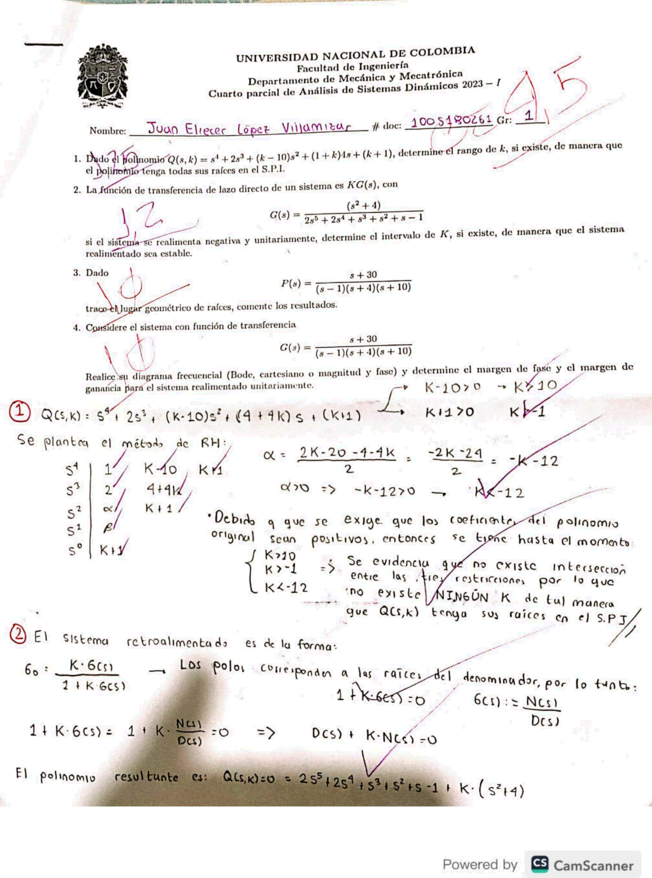 UNIVERSIDAD NACIONAL DE COLOMBIA
Facultad de Ingeniería
Departamento de Mecánica y Mecatrónica
Cuarto parcial de Análisis de Sistemas Dinámicos 2023 – I
4,5
Nombre: Juan Eliecer López Villamizar # doc: 1005180261 Gr: 1
1. Dado el polinomio Q(s, k) = s⁴ + 2s³ + (k − 10)s² + (1 + k)4s + (k + 1), determine el rango de k, si existe, de manera que
el polinomio tenga todas sus raíces en el S.P.I.
2. La función de transferencia de lazo directo de un sistema es KG(s), con
1,2
G(s) = (s² + 4) / (2s⁵ + 2s⁴ + s³ + s² + s − 1)
si el sistema se realimenta negativa y unitariamente, determine el intervalo de K, si existe, de manera que el sistema
realimentado sea estable.
3. Dado
P(s) = (s + 30) / ((s − 1)(s + 4)(s + 10))
trace el lugar geométrico de raíces, comente los resultados.
4. Considere el sistema con función de transferencia
G(s) = (s + 30) / ((s − 1)(s + 4)(s + 10))
Realice su diagrama frecuencial (Bode, cartesiano o magnitud y fase) y determine el margen de fase y el margen de
ganancia para el sistema realimentado unitariamente.
K-10>0 → K>10
① Q(s,K) = s⁴ + 2s³ + (K-10)s² + (4+4K)s + (K+1)
K+1>0 K>-1
Se plantea el método de RH:
s⁴ | 1 K-10 K+1
s³ | 2 4+4K
s² | α K+1
s¹ | β
s⁰ | K+1
α = (2K-20-4-4K)/2 = (-2K-24)/2 = -K-12
α>0 => -K-12>0 → K<-12
• Debido a que se exige que los coeficientes del polinomio
original sean positivos, entonces se tiene hasta el momento:
{ K>10
K>-1
K<-12
=> Se evidencia que no existe intersección
entre las tres restricciones por lo que
no existe NINGÚN K de tal manera
que Q(s,K) tenga sus raíces en el S.P.I
② El sistema retroalimentado es de la forma:
G₀ = K·G(s) / (1 + K·G(s)) → Los polos corresponden a las raíces del denominador, por lo tanto:
1 + K·G(s) = 0 G(s) := N(s)/D(s)
1 + K·G(s) = 1 + K·N(s)/D(s) = 0 => D(s) + K·N(s) = 0
El polinomio resultante es: Q(s,K)=0 = 2s⁵+2s⁴+s³+s²+s-1 + K·(s²+4)
Powered by CS CamScanner